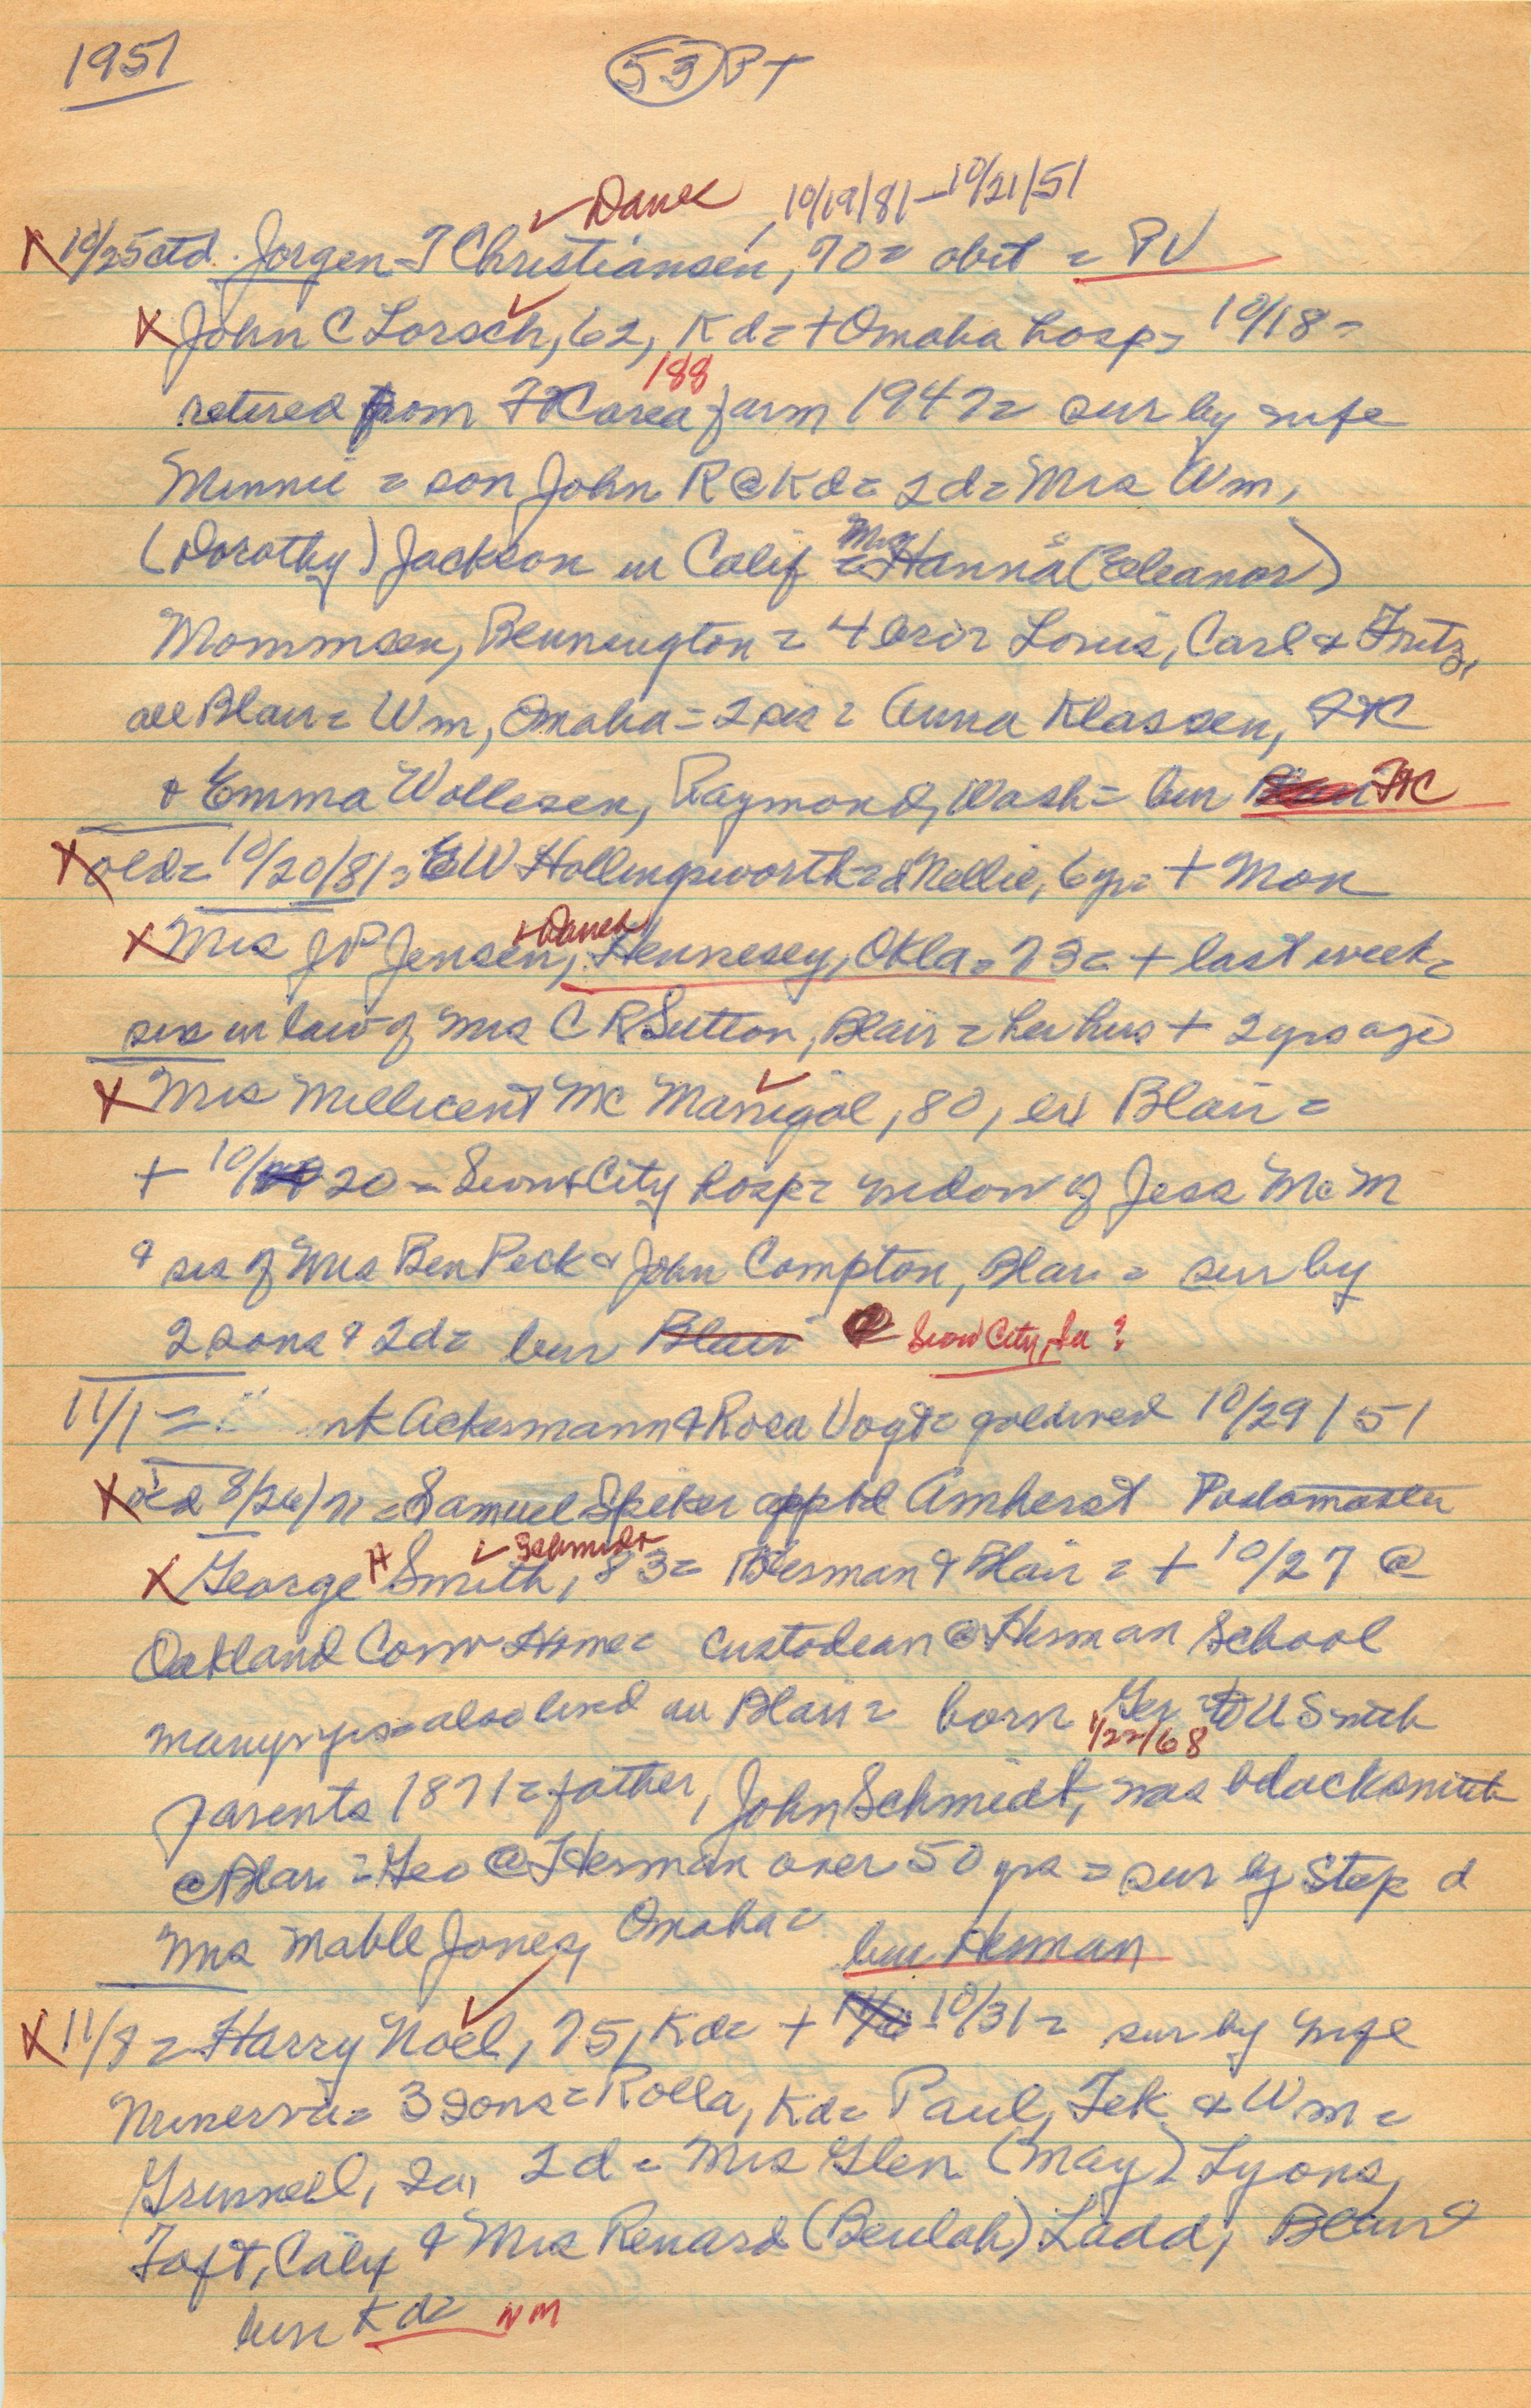 1951
53 PT
✓ Danek 10/19/81 - 10/21/51
X 10/25 ctd. Jorgen T Christiansen, 70 = obit = PV
X John C Lorsch, 62, Kd = + Omaha hosp = 10/18 =
188
retired from FtC area farm 1947 = sur by wife
Minnie = son John R @ Kd = 2 d = Mrs Wm,
(Dorothy) Jackson in Calif = Mrs Hanna (Eleanor)
Mommsen, Bennington = 4 bro = Louis, Carl & Fritz,
all Blair = Wm, Omaha = 2 sis = Anna Klassen, FtC
& Emma Wollesen, Raymond, Wash = bur Blair FtC
X old = 10/20/81 = EW Hollingsworth = d Nellie, 6 yr = + Mon
X Mrs J P Jensen, Hennesey, Okla = 73 = + last week =
sis in law of Mrs C R Sutton, Blair = her hus + 2 yrs ago
X Mrs Millicent Mc Manigal, 80, ex Blair =
+ 10/20 = Sioux City hosp = widow of Jess Mc M
& sis of Mrs Ben Peck & John Compton, Blair = sur by
2 sons & 2 d = bur Blair Sioux City, Ia ?
11/1 = nk Ackermann & Rosa Vogt = gold wed 10/29/51
X old 8/26/71 = Samuel Spiker apptd Amherst Postmaster
✓ Schmidt
X George H Smith, 83 = Herman & Blair = + 10/27 @
Oakland Conv Home = custodean @ Herman School
many yrs = also lived in Blair = born Ger = to US with
1/22/68
parents 1871 = father, John Schmidt, was blacksmith
@ Blair = Geo @ Herman over 50 yrs = sur by step d
Mrs Mable Jones, Omaha = bur Herman
X 11/8 = Harry Noël, 75, Kd = + 10/31 = sur by wife
Minervia = 3 sons = Rolla, Kd = Paul, Tek & Wm =
Grinnell, Ia, 2 d = Mrs Glen (May) Lyons,
Taft, Calif & Mrs Renard (Beulah) Ladd, Blair =
bur Kd = NM